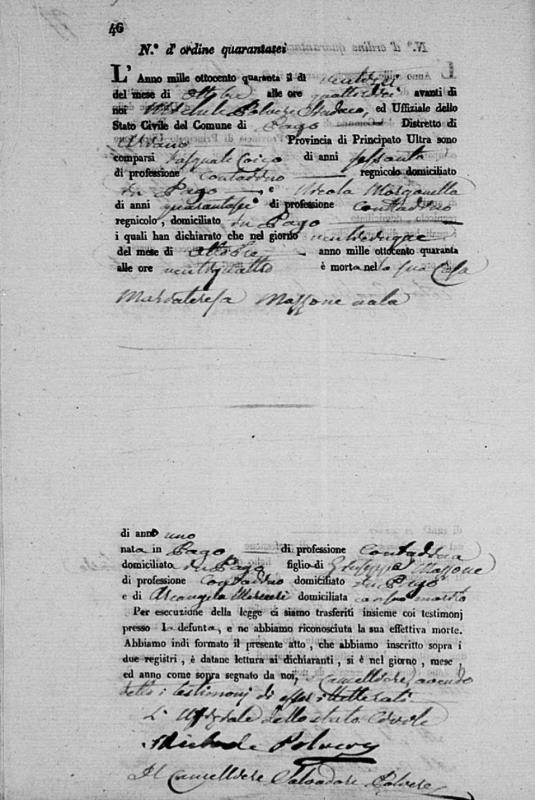 46
N.º d'ordine quarantasei
L'Anno mille ottocento quaranta il dì ventisei
del mese di Ottobre alle ore quattordici avanti di
noi Michele Polvere Sindaco, ed Uffiziale dello
Stato Civile del Comune di Pago Distretto di
Ariano Provincia di Principato Ultra sono
comparsi Pasquale Caico di anni sessanta
di professione Contadino regnicolo domiciliato
in Pago e Nicola Morganella
di anni quarantasei di professione Contadino
regnicolo, domiciliato in Pago
i quali han dichiarato che nel giorno venticinque
del mese di Ottobre anno mille ottocento quaranta
alle ore ventiquattro è morta nella sua Casa
Mariateresa Mazzone
di anno uno
nata in Pago di professione Contadina
domiciliato in Pago figlio di Giuseppe Mazzone
di professione Contadino domiciliato in Pago
e di Arcangela Mercuri domiciliata
Per esecuzione della legge ci siamo trasferiti insieme coi testimonj
presso la defunta, e ne abbiamo riconosciuta la sua effettiva morte.
Abbiamo indi formato il presente atto, che abbiamo inscritto sopra i
due registri, è datane lettura ai dichiaranti, si è nel giorno, mese,
ed anno come sopra segnato da noi, e Cancelliere, avendo
detto i testimonj di esser illetterati
L'Uffiziale dello stato Civile
Michele Polvere
Il Cancelliere Salvadore Polvere